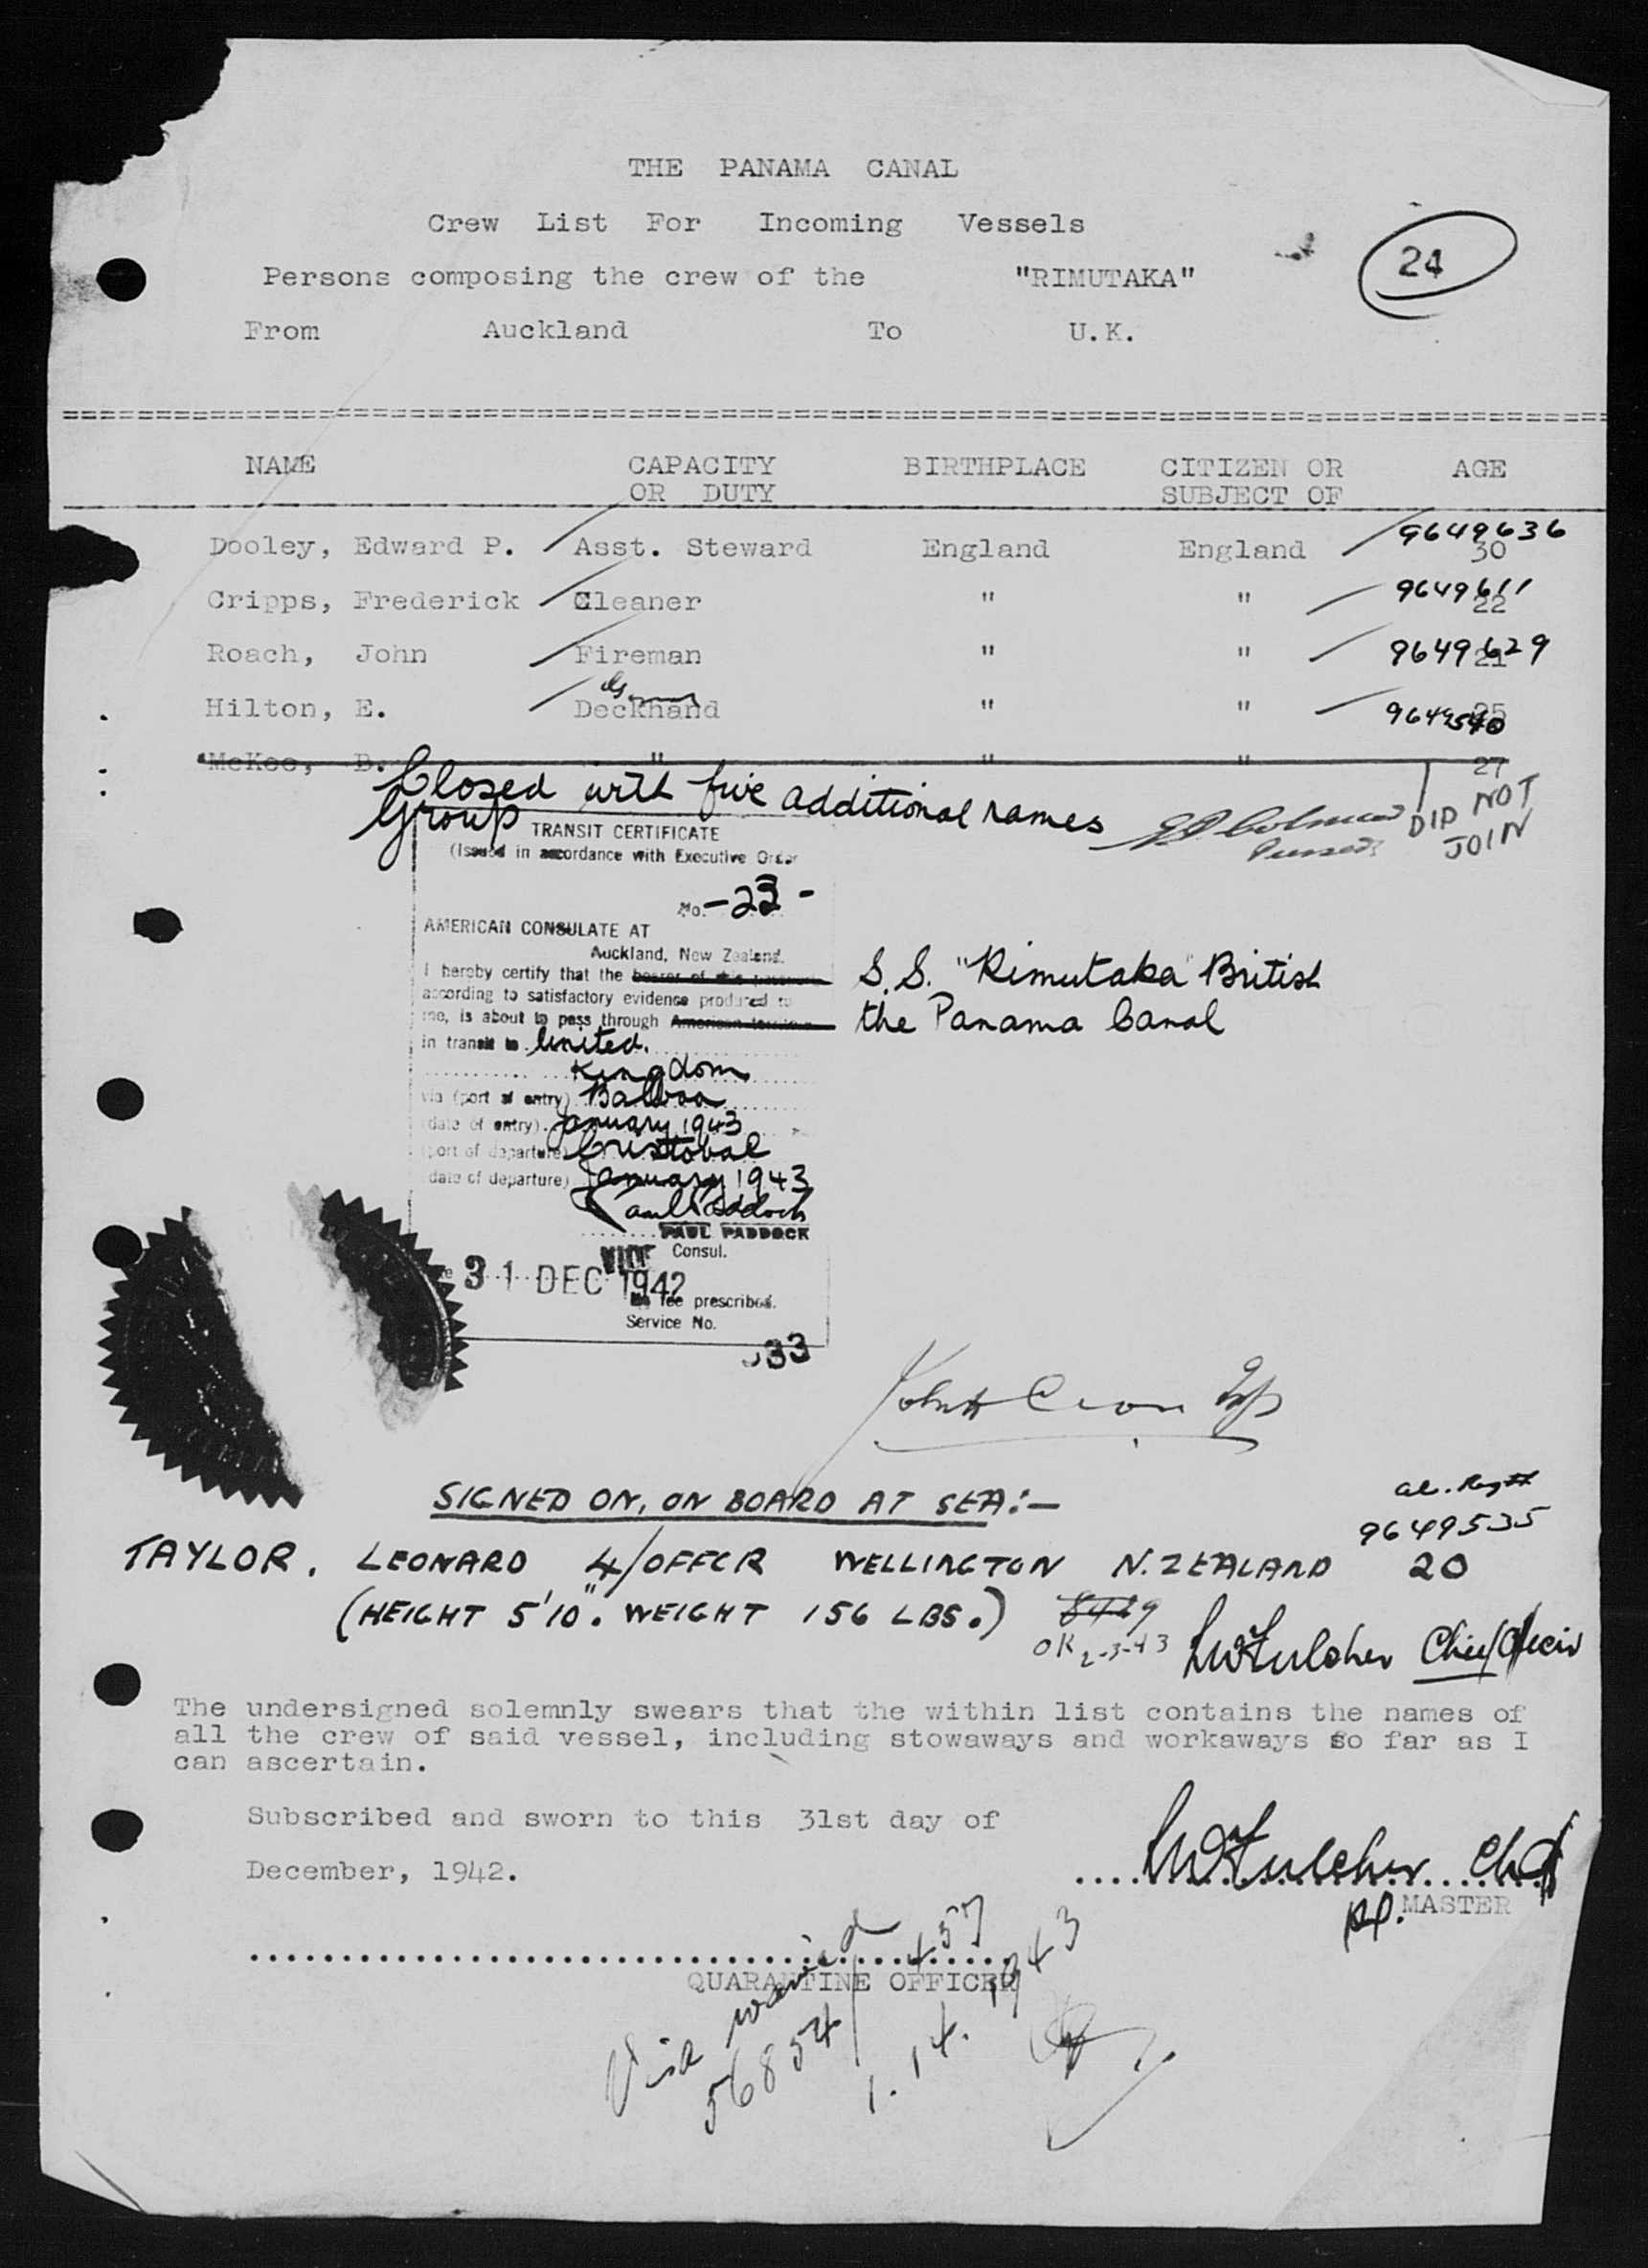 THE PANAMA CANAL
Crew List For Incoming Vessels
24
Persons composing the crew of the "RIMUTAKA"
From Auckland To U.K.
NAME CAPACITY OR DUTY BIRTHPLACE CITIZEN OR SUBJECT OF AGE
Dooley, Edward P. Asst. Steward England England 30 9649636
Cripps, Frederick Cleaner " " 22 9649611
Roach, John Fireman " " 21 9649629
Hilton, E. Deckhand " " 25
McKee, B. " " " 27
DID NOT
JOIN
Closed with five additional names
Group
TRANSIT CERTIFICATE
(Issued in accordance with Executive Order
No. -23-
AMERICAN CONSULATE AT
Auckland, New Zealand.
I hereby certify that the bearer of this S.S. "Rimutaka" British
according to satisfactory evidence produced to
me, is about to pass through American the Panama Canal
in transit to United
Kingdom
via (port of entry) Balboa
(date of entry) January 1943
(port of departure) Cristobal
(date of departure) January 1943
Paul Paddock
PAUL PADDOCK
VICE Consul.
31 DEC 1942
No fee prescribed.
Service No.
33
SIGNED ON, ON BOARD AT SEA:-
9649535
TAYLOR, LEONARD 4/OFFCR WELLINGTON N.ZEALAND 20
(HEIGHT 5'10". WEIGHT 156 LBS.)
OK 2-3-43 LWFulcher Chief Officer
The undersigned solemnly swears that the within list contains the names of
all the crew of said vessel, including stowaways and workaways so far as I
can ascertain.
Subscribed and sworn to this 31st day of
December, 1942.
LWFulcher
pp. MASTER
QUARANTINE OFFICER
Visa waived
56854/457
1.14.1943